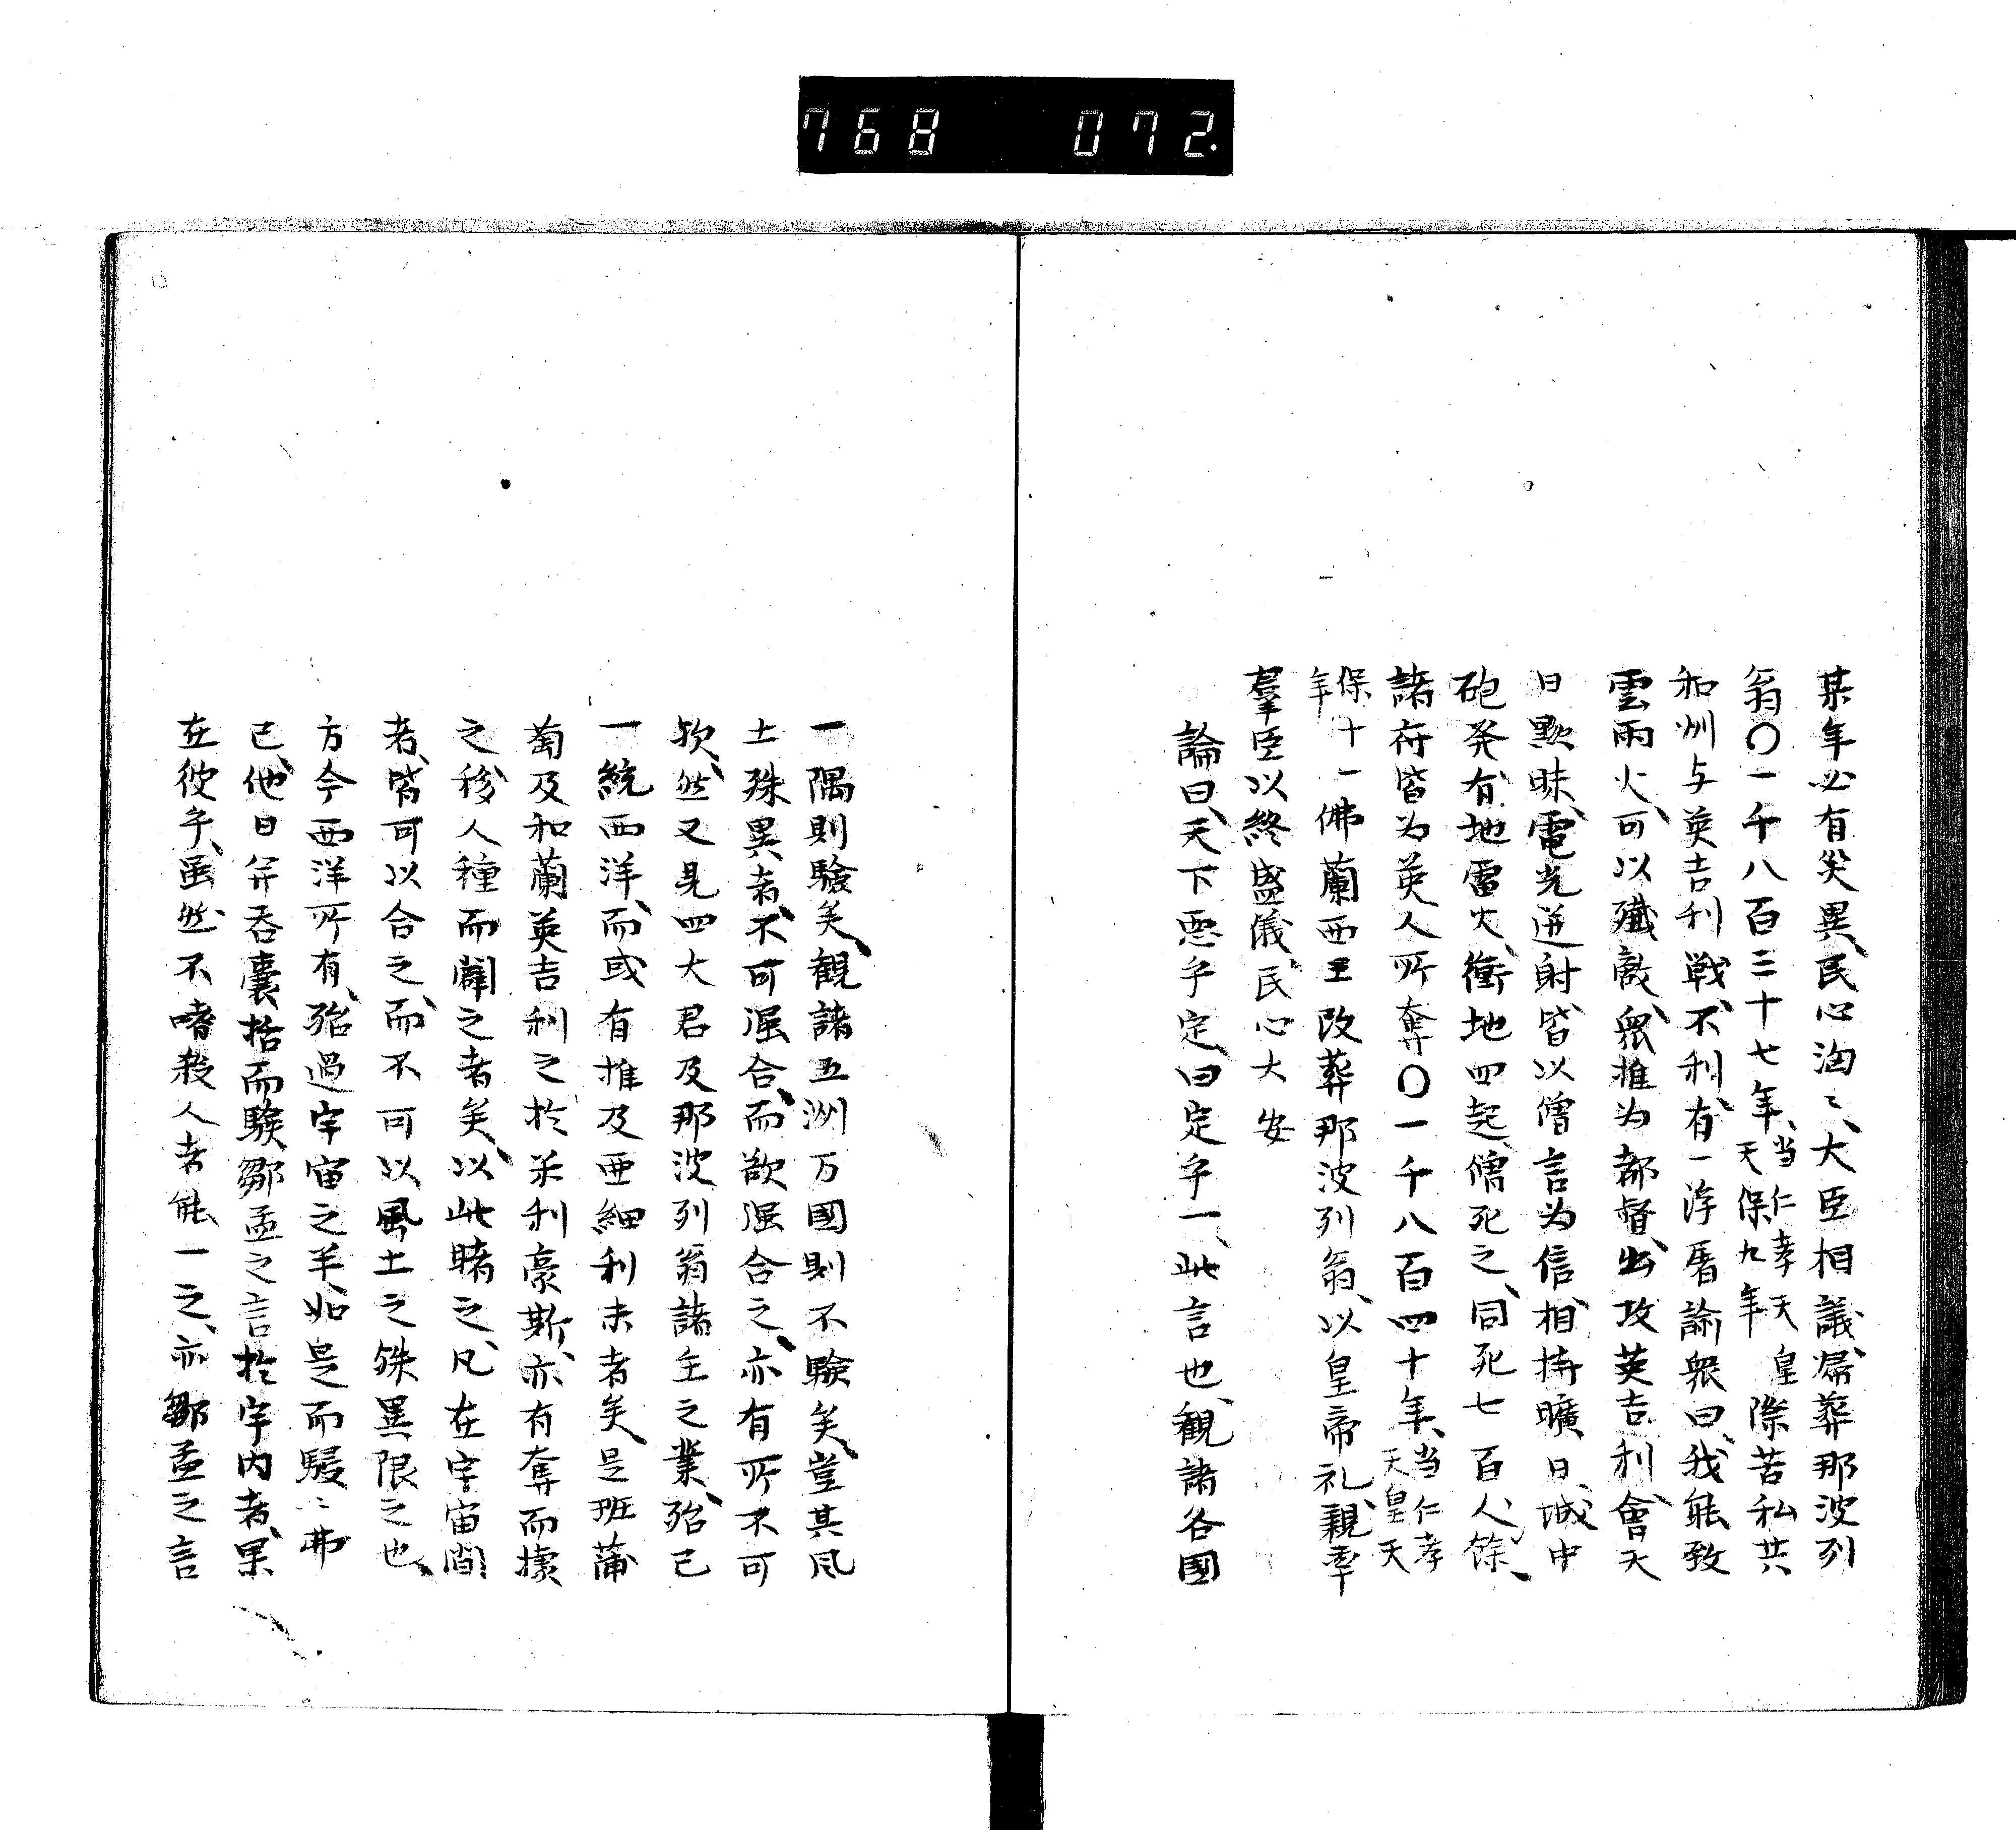 768 072.
某年必有災異、民心洶〻、大臣相議、帰葬那波列
翁〇一千八百三十七年、当仁孝天皇天保九年際苦私共
和州与英吉利戦、不利、有一浮屠諭衆曰、我能致
雲雨火、可以殲敵、衆推为都督、出攻英吉利、會天
日黙昧、電光迸射、皆以僧言为信、相持曠日、城中
砲発、有地雷火、衝地四起、僧死之、同死七百人餘、
諸府皆为英人所奪〇一千八百四十年、当仁孝天皇天
保十一年佛蘭西王改葬那波列翁、以皇帝礼、親率
羣臣以終盛儀、民心大安
論曰、天下悪乎定、曰定乎一、此言也、観諸各國
一隅則驗矣、観諸五洲万國則不驗矣、豈其風
土殊異者、不可强合、而欲强合之、亦有所不可
欤、然又見四大君及那波列翁諸主之業、殆已
一統西洋、而或有推及亜細利未者矣、是班蒲
萄及和蘭英吉利之於米利豪斯、亦有奪而據
之、移人種而闢之者矣、以此睹之、凡在宇宙間
者、皆可以合之、而不可以風土之殊異限之也、
方今西洋所有、殆過宇宙之半、如是而駸〻弗
已、他日并吞囊括而驗鄒孟之言於宇内者、果
在彼乎、虽然不嗜殺人者能一之、亦鄒孟之言